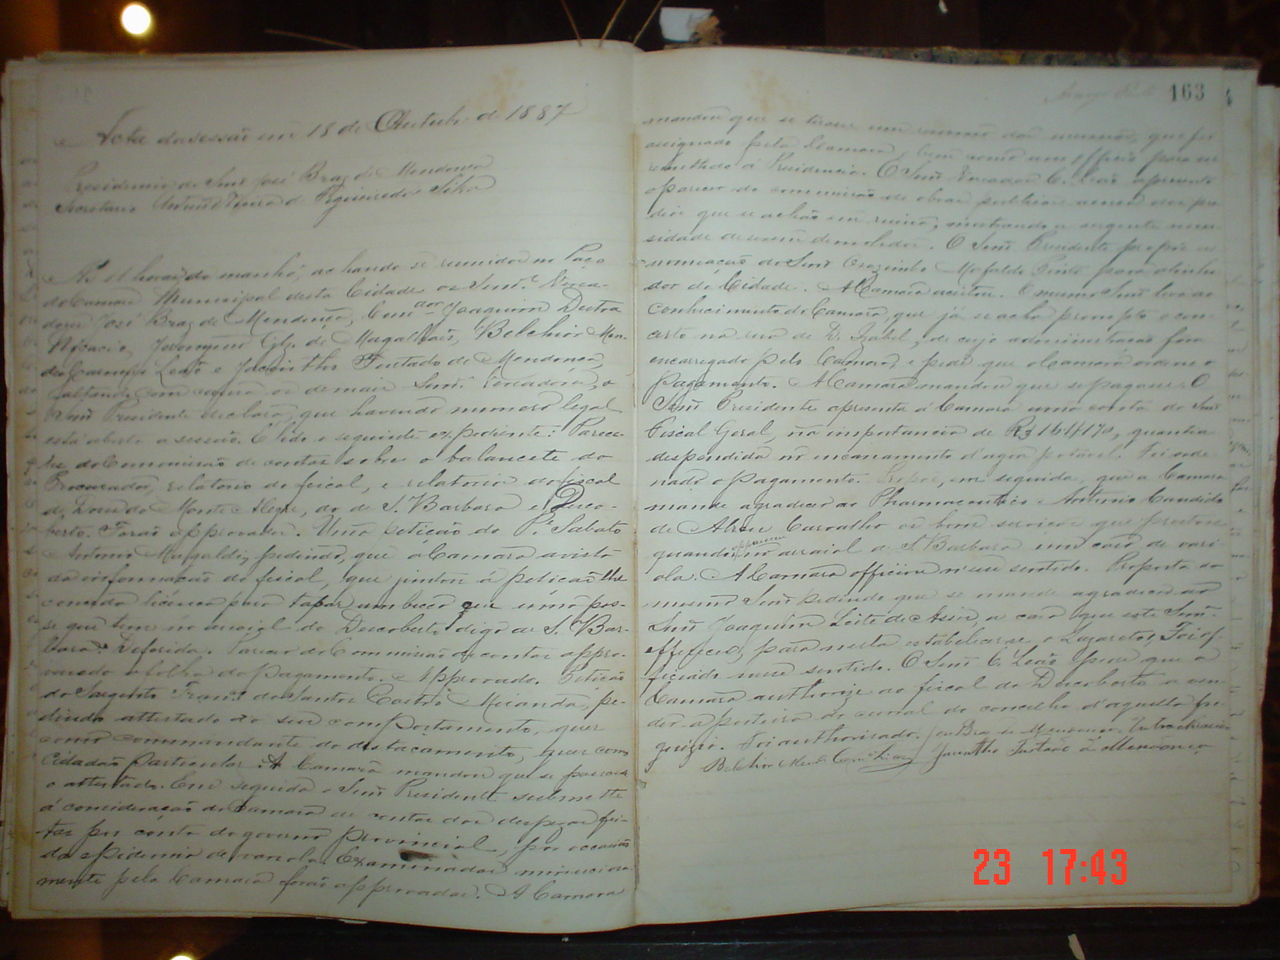 Acta da sessão em 18 de Outubro de 1887
Presidencia do Senr José Braz de Mendonça
Secretario Antonio de Figueiredo Silva
Ás 11 horas da manhã, achando se reunidos no Paço
da Camara Municipal desta Cidade os Senres Verea-
dores José Braz de Mendonça, Joaquim Dutra
Nicacio, Jeronymo Glz. de Magalhães, Belchior Men-
des Carneiro Leão e Jacintho Furtado de Mendonça,
faltando os demais Senres Vereadores, o
Senr Presidente declara, que havendo numero legal
está aberta a sessão. É lido o seguinte expediente: Parece-
res da Commissão de contas sobre o balancete do
Procurador, relatorio do fiscal, e relatorio do fiscal
de Dores do Monte Alegre, do de S. Barbara e Desco-
berto. Forão approvados. Uma petição do Pe. Sabato
Antonio Mugaldi, pedindo, que a Camara a vista
da informação do fiscal, que juntou á petição lhe
conceda licença para tapar um beco que
se que tem no arraial do Descoberto digo de S. Bar-
bara. Deferida. Parecer da Commissão de contas appro-
vando a folha do pagamento. Approvado. Petição
do Sargento Franco dos Santos Castro Miranda, pe-
dindo attestado do seu comportamento, quer
como commandante do destacamento, quer como
Cidadão Particular. A Camara mandou que se passasse
o attestado. Em seguida o Senr Presidente submette
á consideração da Camara as contas das despezas fei-
tas por conta do governo Provincial, por occasião
da epidemia de variola. Examinadas minuciosa-
mente pela Camara forão approvadas. A Camara
163
mandou que se tirasse um resumo das mesmas, que foi
assignado pela Camara, bem como um officio para ser
remettido á Presidencia. O Senr Vereador C. Leão apresenta
o parecer da commissão de obras publicas acerca dos pre-
dios que se achão em ruina, mostrando a urgente neces-
sidade de serem demolidos. O Senr Presidente propõe a
nomeação do Senr Mafaldo Pinto para alinha-
dor da Cidade. A Camara aceitou. O mesmo Senr leva ao
conhecimento da Camara, que já se acha prompto o con-
certo na rua de D. Izabel, de cuja administração fora
encarregado pela Camara e pede que a Camara ordene o
Pagamento. A Camara mandou que se pagasse. O
Senr Presidente apresenta á Camara uma conta do Senr
Fiscal Geral, na importancia de Rs 164$170, quantia
despendida no encanamento d'agua potavel. Foi orde-
nado o pagamento. Propoz, em seguida, que a Camara
mande agradecer ao Pharmaceutico Antonio Candido
de Abreu Carvalho os bons serviços que prestou
quando appareceu no arraial de S. Barbara um caso de vari-
ola. A Camara officiou n'esse sentido. Proposta do
mesmo Senr pedindo que se mande agradecer ao
Senr Joaquim Leite de Assis, a casa que este Senr
offereceu, para nesta estabelecer-se o Lazareto. Foi of-
ficiado nesse sentido. O Senr C. Leão pede que a
Camara authorize ao fiscal do Descoberto a ven-
der a porteira do curral do concelho d'aquella fre-
guezia. Foi authorisado. José Braz de Mendonça. Dutra Nicacio
Belchior Mendes Carnro Leão Jacintho Furtado de Mendonça
23 17:43